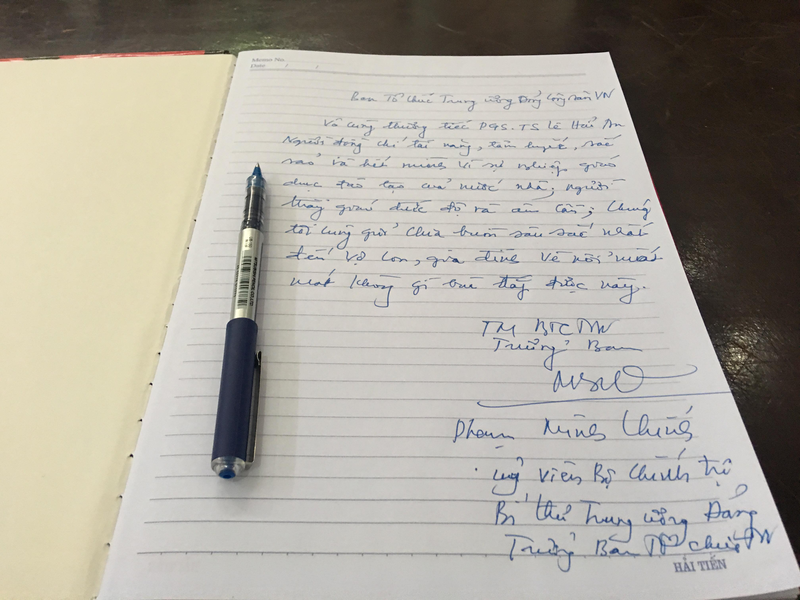 Memo No.
Date / /
Ban Tổ chức Trung ương Đảng Cộng sản VN
Vô cùng thương tiếc PGS.TS Lê Hải An
Người đồng chí tài năng, tâm huyết, sắc
sảo và hết mình vì sự nghiệp giáo
dục đào tạo của nước nhà; người
thầy giáo đức độ và ân cần; Chúng
tôi cùng gửi chia buồn sâu sắc nhất
đến vợ con, gia đình về nỗi mất
mát không gì bù đắp được này.
TM BTCTW
Trưởng Ban
Phạm Minh Chính
Uỷ viên Bộ Chính trị
Bí thư Trung ương Đảng
Trưởng Ban Tổ chức TW
HẢI TIẾN